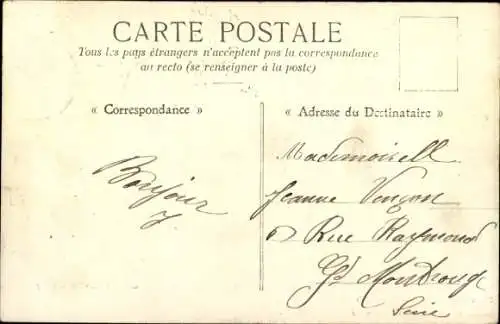 CARTE POSTALE
Tous les pays étrangers n'acceptent pas la correspondance
au recto (se renseigner à la poste)
« Correspondance »
« Adresse du Destinataire »
Bonjour
Mademoiselle
Jeanne
Rue Raymond
Gd Montrouge
Seine